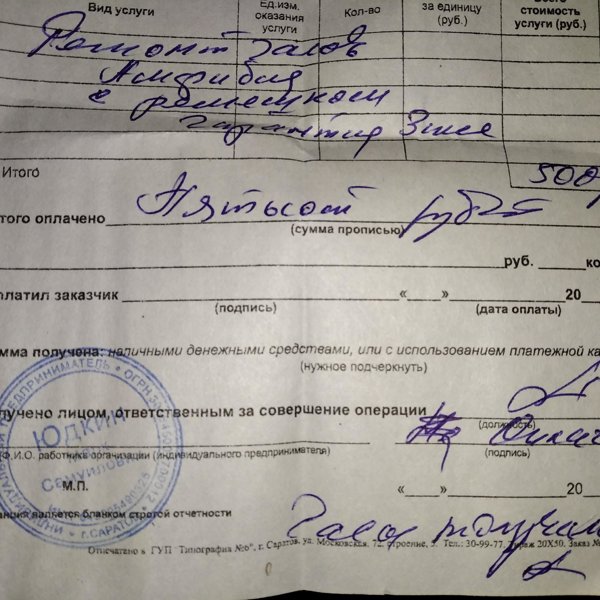 Вид услуги
Ед.изм. оказания услуги
Кол-во
за единицу (руб.)
Всего стоимость услуги (руб.)
Ремонт часов
Амфибия
с ремешком
гарантия 3 мес
Итого
500
того оплачено Пятьсот рублей
(сумма прописью)
руб. ко
платил заказчик « » 20
(подпись) (дата оплаты)
мма получена: наличными денежными средствами, или с использованием платежной ка
(нужное подчеркнуть)
лучено лицом, ответственным за совершение операции
(должность)
(Ф.И.О. работника организации (индивидуального предпринимателя) (подпись)
М.П. « » 20
анция является бланком строгой отчетности
Часы получил
Отпечатано в ГУП "Типография №6", г. Саратов, ул. Московская, 72, строение, 5 Тел.: 30-99-77, Тираж 20Х50, Заказ №
ПРЕДПРИНИМАТЕЛЬ • ОГРН
Юдкин
Самуилович
г. САРАТОВ